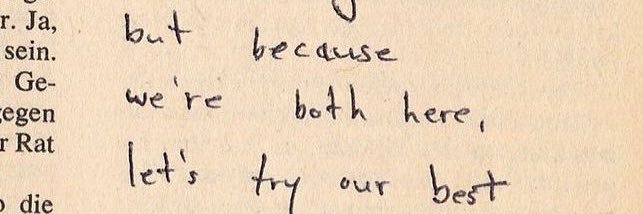 r. Ja,
sein.
Ge-
egen
r Rat
die
but because
we're both here,
let's try our best